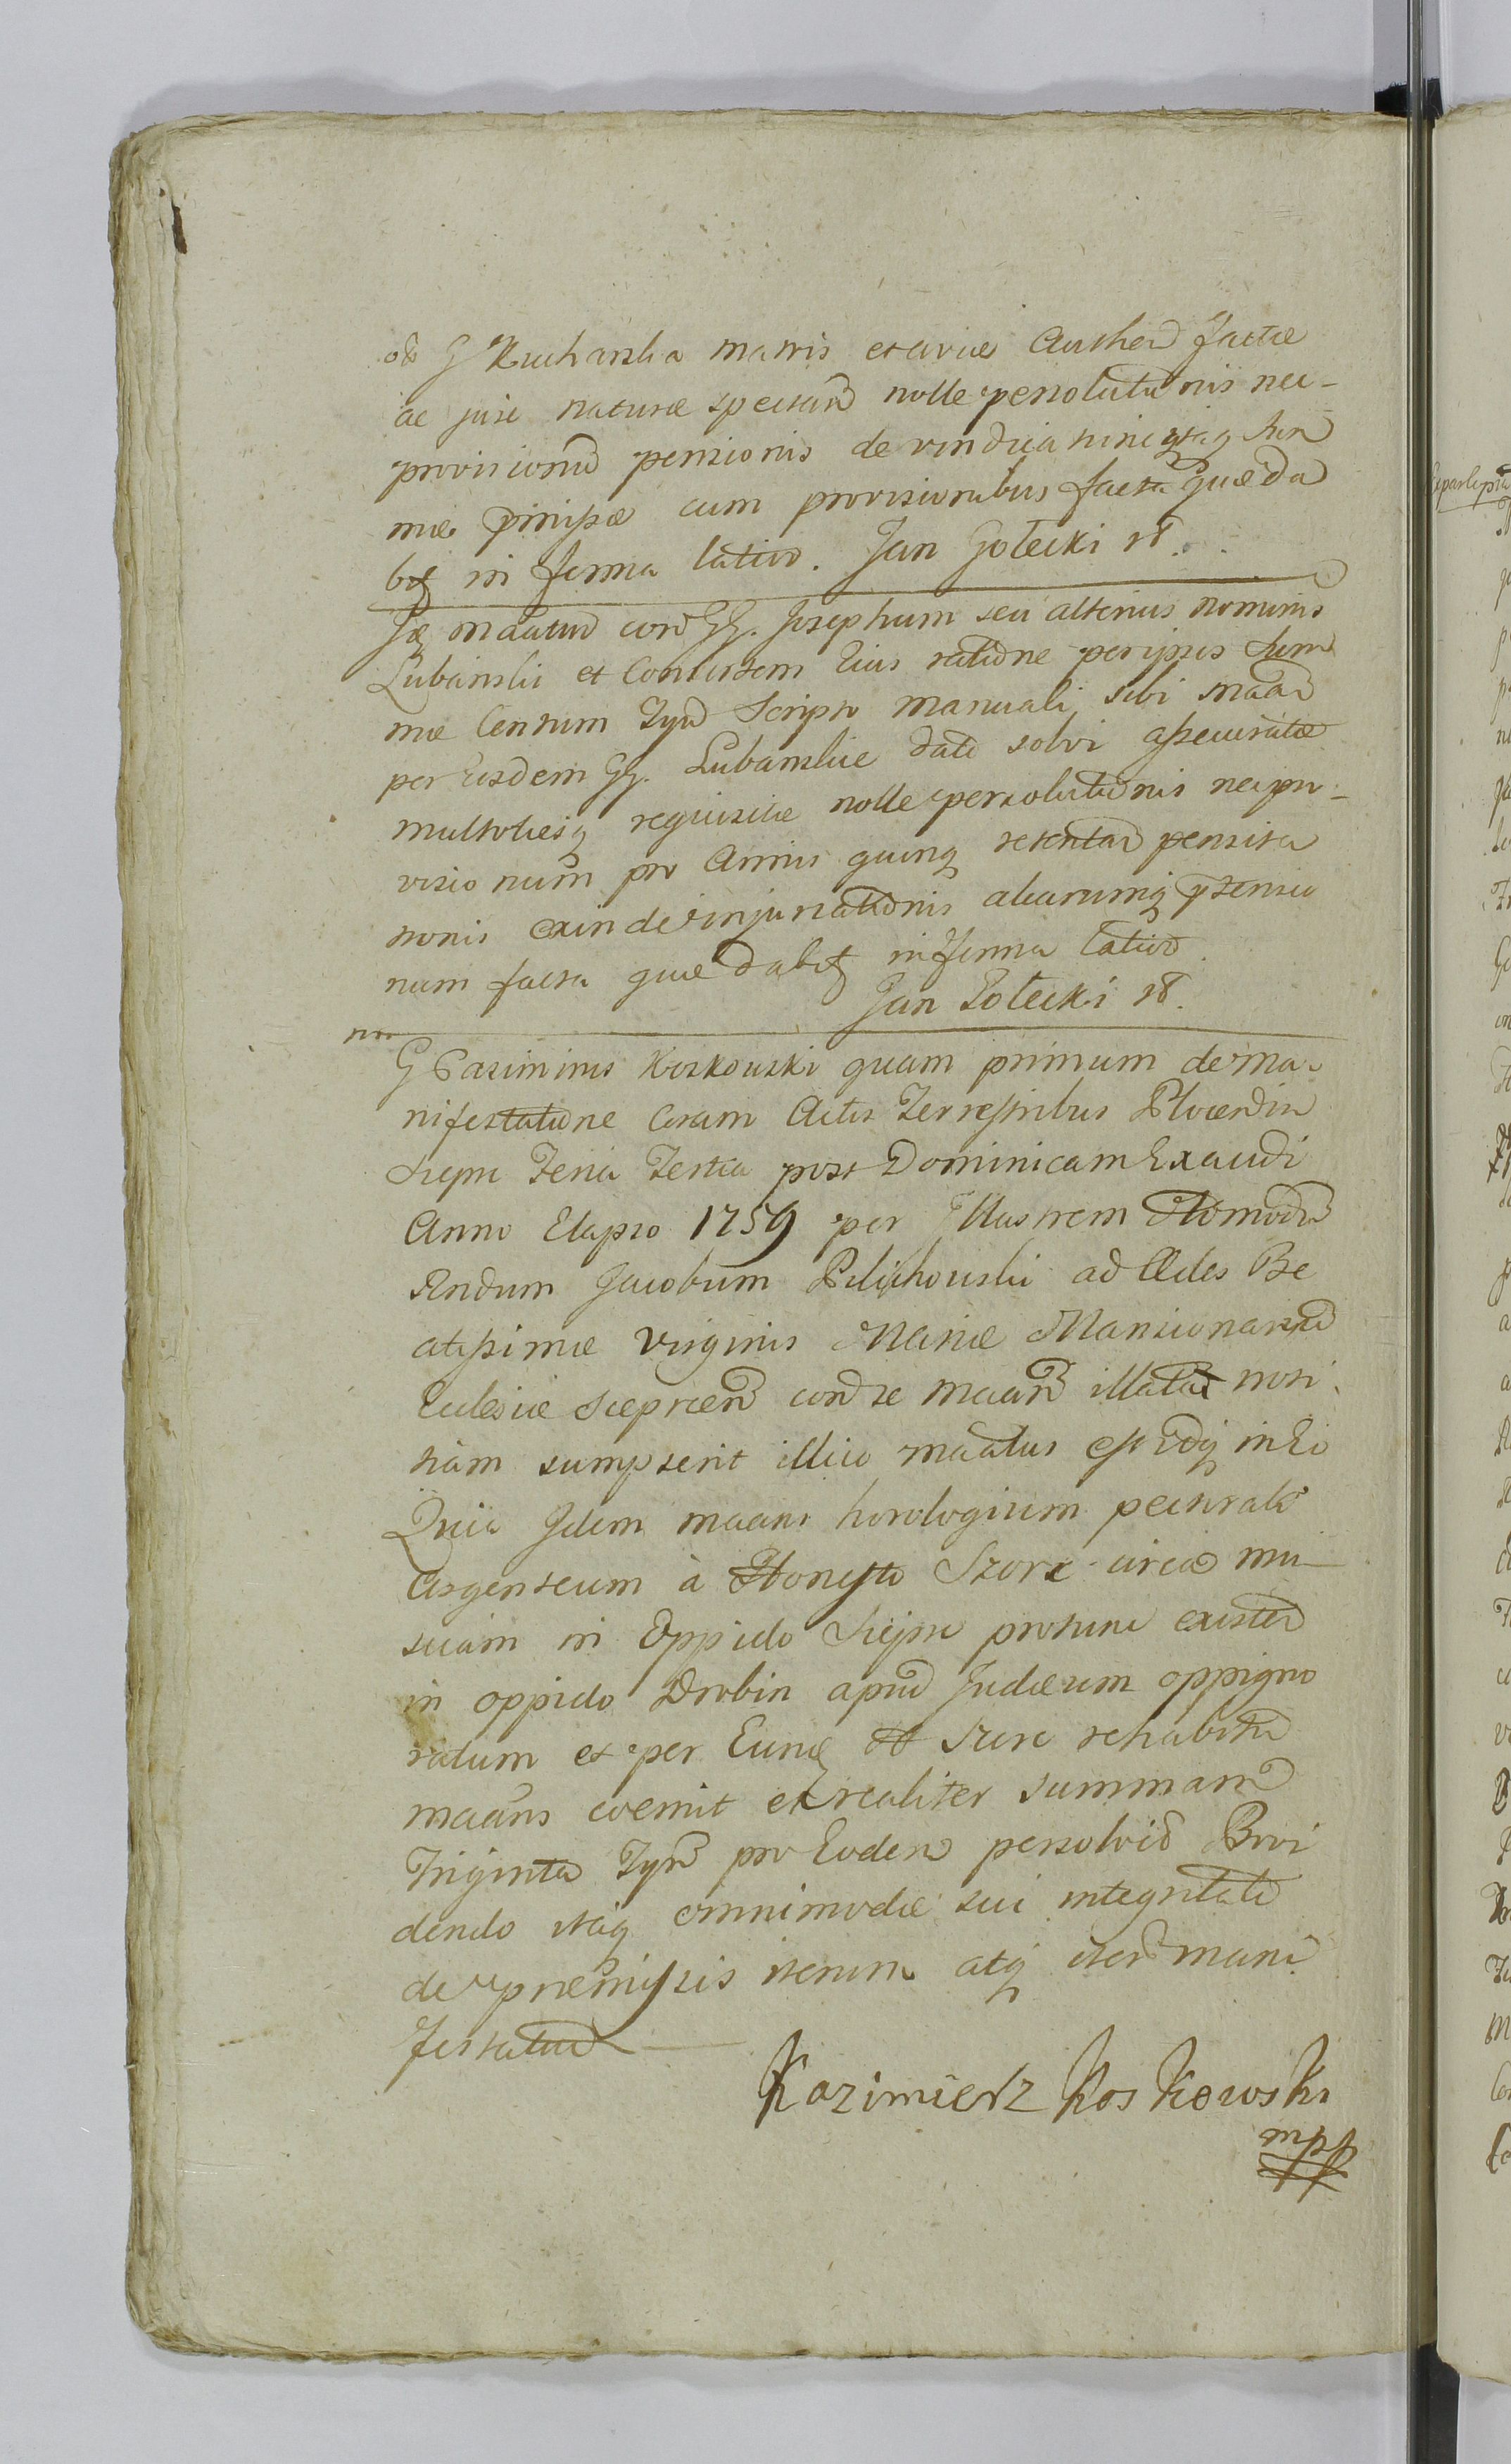 ob G Kucharska matris et aviæ Authen factæ
ac jure naturæ spectan nolle persolutionis nec-
provisionu pensionis de vindica hincqtaq sum
mæ pmissæ cum provisionibus facta quæ da
bit in ferma latius. Jan Gołecki rs.
Idē maatur con GG. Josephum seu alterius nominis
Lubanski et Consortem Eius ratione per ipsos sum
mæ Centum Tyn Scripto manuali sibi maan
per Eosdem GG. Lubanskie dato solvi assecuratæ
multotiesq requisitæ nolle persolutionis nec pro-
visionum pro Annis quinq retentar pensita
tionis exinde injuriationis aliarumq ptensio
num facta quæ dabit in ferma latius
Jan Gołecki rs.
nn
G Casimirus Koskouski quam primum de ma-
nifestatione Coram Actis Terrestribus Plocen in
Sieprc Feria Tertia post Dominicam Exaudi
Anno Elapso 1759 per Illustrem Admodu
Rndum Jacobum Pilichouski ad Ædes Be
atissimæ Virginis Mariæ Mansionariu
Ecclesiæ Sieprcen con se maan illata noti
tiam sumpserit illico maatus est Idq in Eo
Quia Idem maans horologium pectorale
Argenteum à Honesto Szorc circa mu
suam in Oppido Sieprc protunc existen
in oppido Drobin apud Judæum oppigno
ratum et per Eunde H Szorc rehabitu
maans coemit et realiter summam
Triginta Tyn pro Eodem persolvit Provi
dendo itaq omnimodæ sui integritati
de præmissis iterum atq iteru mani
festatur
Kazimierz Koskowski
mpp